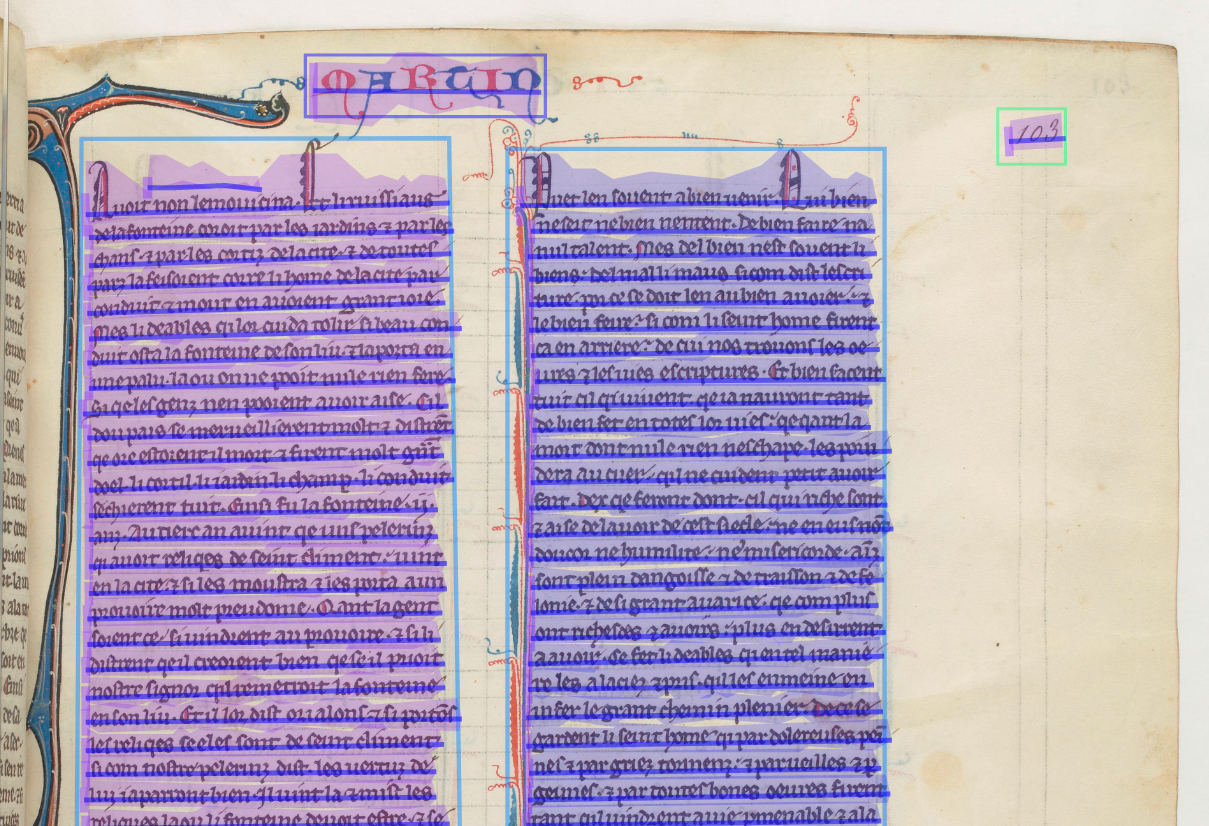 MARTIN
103
Avoit non lemovicina. Et li ruissiaus
de la fonteine coroit par les iardins & par les
chans. & par les cortiz de la cite. & de toutes
parz la feisoient corre li home de la cite par
conduit & mout en avoient grant ioie.
Mes li deables qi lor cuida tolir si beau con
duit osta la fonteine de son liu & la porta en
une palu. la ou on ne pooit nule rien fere
Si qe les genz nen pooient avoir aise. Cil
dou pais se merveillierent molt & distrent
qe ore estoient il mort & firent molt grant
doel. li cortil. li iardin. li champ. li conduit
sechierent tuit. Einsi fu la fonteine. ii.
anz. Au tierz an avint qe uns pelerinz
qi avoit reliqes de seint climent. vint
en la cite & si les moustra & les porta a un
provoire molt preudome. Qant la gent
soient ce. si vindrent au provoire. & si li
distrent qe il creoient bien qe se il prioit
nostre signor qil remetroit la fonteine
en son liu. Et il lor dist or i alons & si portons
les reliqes se eles sont de seint climent
si com nostre pelerinz dist. les vertuz de
lui i aparront bien. Il vint la & mist les
reliqes la ou li fonteine devoit estre. & se
Puet len sovent a bien venir. Qui bien
ne set ne bien nentent. De bien faire na
nul talent. Mes del bien nest sovent li
biens. del mal li maus si com dist lescri
ture. por ce se doit len au bien avoier. &
le bien feire. si com li seint home firent
ca en arriere. de cui nos trovons les oe
vres & les vies escriptures. Et bien sacent
tuit cil qi vivent. qe ia nauront tant
de bien fet en totes lor vies. qe qant la
mort dont nule rien neschape les poin
dera au cuer. qil ne cuident petit avoir
fait. Dex qe feront dont. cil qui riche sont
& aise de lavoir de cest siecle. ne en eus non
doucor ne humilite. ne misericorde. ainz
sont plein dangoisse & de traisson & de fe
lonie. & de si grant avarice. qe com plus
ont richesces & avoirs. plus en desirrent
a avoir. Ce fet li deables qi en tel manie
re les a laciez & pris. qil les enmeine en
infer le grant chemin plenier. De ce se
gardent li seint home qi par dolereuses poi
nes & par griez tormenz. & par veilles & par
geunes. & par toutes bones oevres firent
tant qil vindrent a vie pmenable & a la